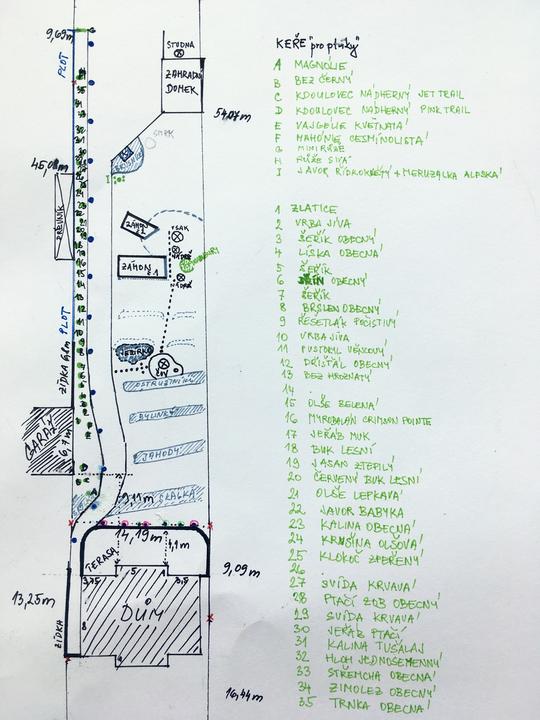 KEŘE "pro ptáky"
A MAGNÓLIE
B BEZ ČERNÝ
C KDOULOVEC NÁDHERNÝ JET TRAIL
D KDOULOVEC NÁDHERNÝ PINK TRAIL
E VAJGÉLIE KVĚTNATÁ
F MAHÓNIE CESMÍNOLISTÁ
G MINIRŮŽE
H RŮŽE SIVÁ
I JAVOR ŘÍDKOKVĚTÝ + MERUZALKA ALPSKÁ
1 ZLATICE
2 VRBA JÍVA
3 ŠEŘÍK OBECNÝ
4 LÍSKA OBECNÁ
5 ŠEŘÍK
6 OBECNÝ
7 ŠEŘÍK
8 BRSLEN OBECNÝ
9 ŘEŠETLÁK POČISTIVÝ
10 VRBA JÍVA
11 PUSTORYL VĚNCOVÝ
12 DŘIŠŤÁL OBECNÝ
13 BEZ HROZNATÝ
14
15 OLŠE ZELENÁ
16 MYROBALÁN CRIMSON POINTE
17 JEŘÁB MUK
18 BUK LESNÍ
19 JASAN ZTEPILÝ
20 ČERVENÝ BUK LESNÍ
21 OLŠE LEPKAVÁ
22 JAVOR BABYKA
23 KALINA OBECNÁ
24 KRUŠINA OLŠOVÁ
25 KLOKOČ ZPEŘENÝ
26
27 SVÍDA KRVAVÁ
28 PTAČÍ ZOB OBECNÝ
29 SVÍDA KRVAVÁ
30 JEŘÁB PTAČÍ
31 KALINA TUŠALAJ
32 HLOH JEDNOSEMENNÝ
33 STŘEMCHA OBECNÁ
34 ZIMOLEZ OBECNÝ
35 TRNKA OBECNÁ
9,69m
PLOT
STUDNA
ZAHRADNÍ
DOMEK
54,07m
SMRK
DŘEVNÍK
ZÁHON
ZÁHON
VSAK
PLOT
ZÍDKA
JEZÍRKO
OSTRUŽINÍK
BYLINKY
JAHODY
SKALKA
GARÁŽ
6,7m
9,11m
14,19m
4,1m
TERASA
9,09m
3,75
5
3,5
13,25m
ZÍDKA
8
DŮM
9
16,44m